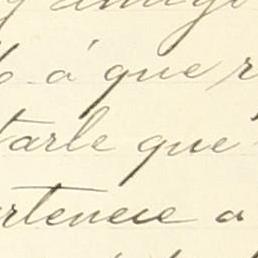 y amigo
ó á que r
tarle que
rtenece a